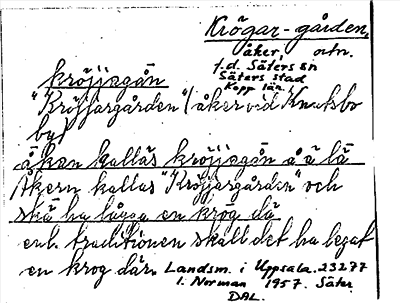 Krögar-gården,
åker, ortn.
f.d. Säters sn
Säters stad
Kopp. län.
kröjjagån
"Kröjjargården" (åker vid Knutsbo
by)
åkan kallas kröjjagån å ä lä
Åkern kallas "Kröjjargården" och
skä ha lägga en krog dä
enl. traditionen skall det ha legat
en krog där. Landsm. i Uppsala. 23277
I. Norman 1957. Säter
DAL.